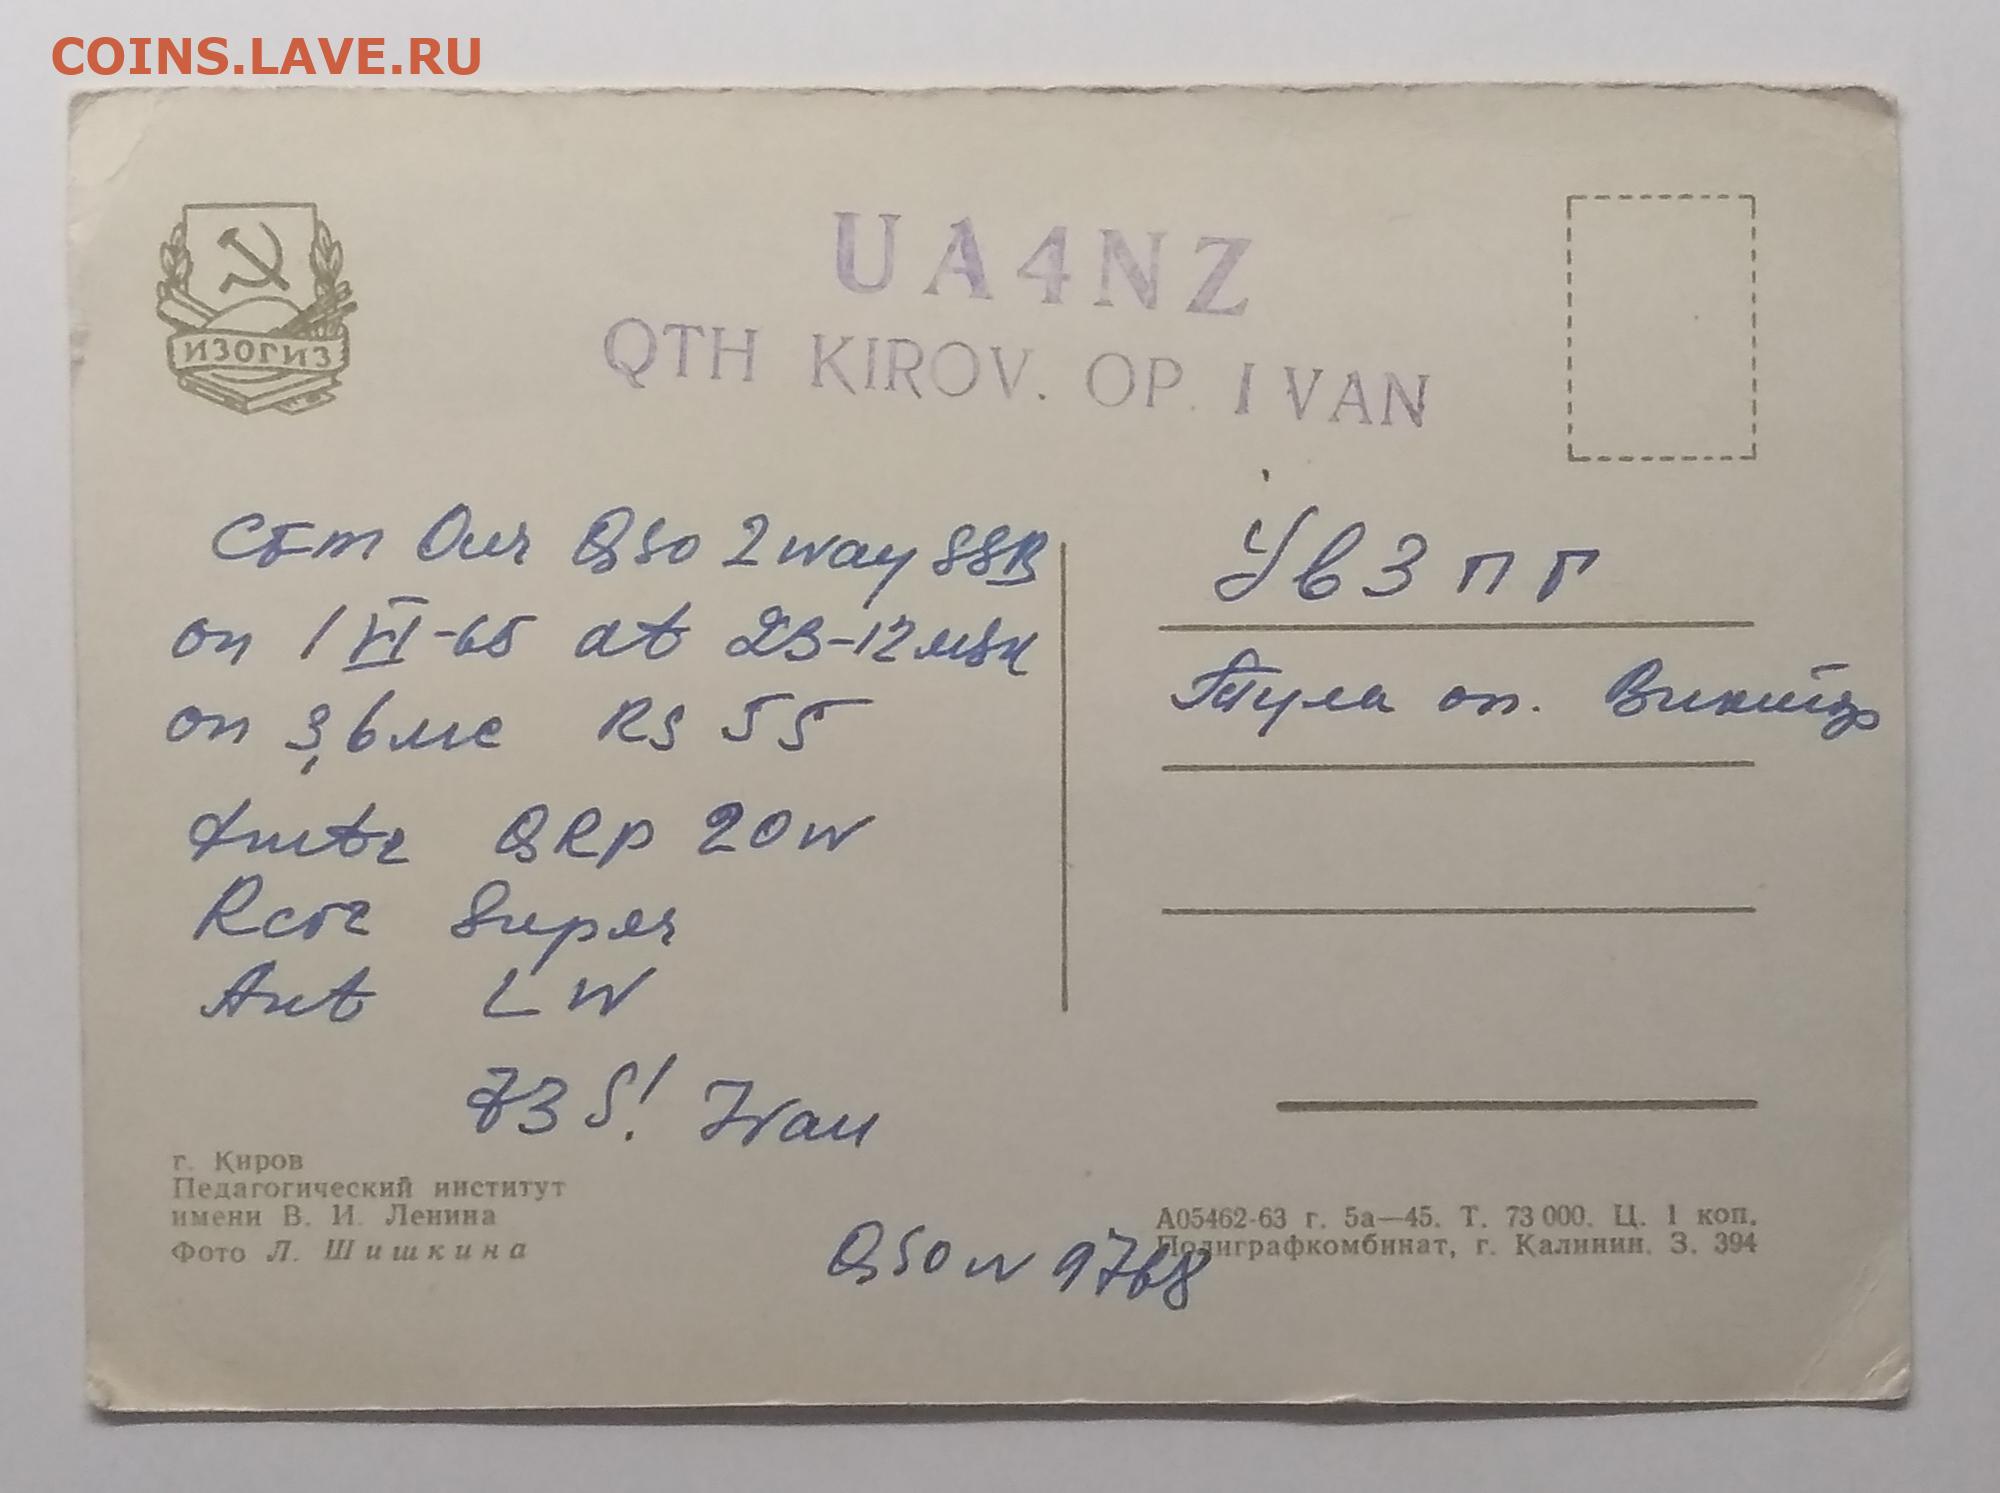 COINS.LAVE.RU
ИЗОГИЗ
UA4NZ
QTH KIROV. OP. IVAN
Cfm Our QSO 2 way SSB
on 1 VI-65 at 23-12 msk
on 3,6 мс RS 55
QRP 20w
Super
Ant LW
73 S! Ivan
УВ3ПГ
Тула оп. Виктор
г. Киров
Педагогический институт
имени В. И. Ленина
Фото Л. Шишкина
QSO N 9768
А05462-63 г. 5а—45. Т. 73 000. Ц. 1 коп.
Полиграфкомбинат, г. Калинин. З. 394